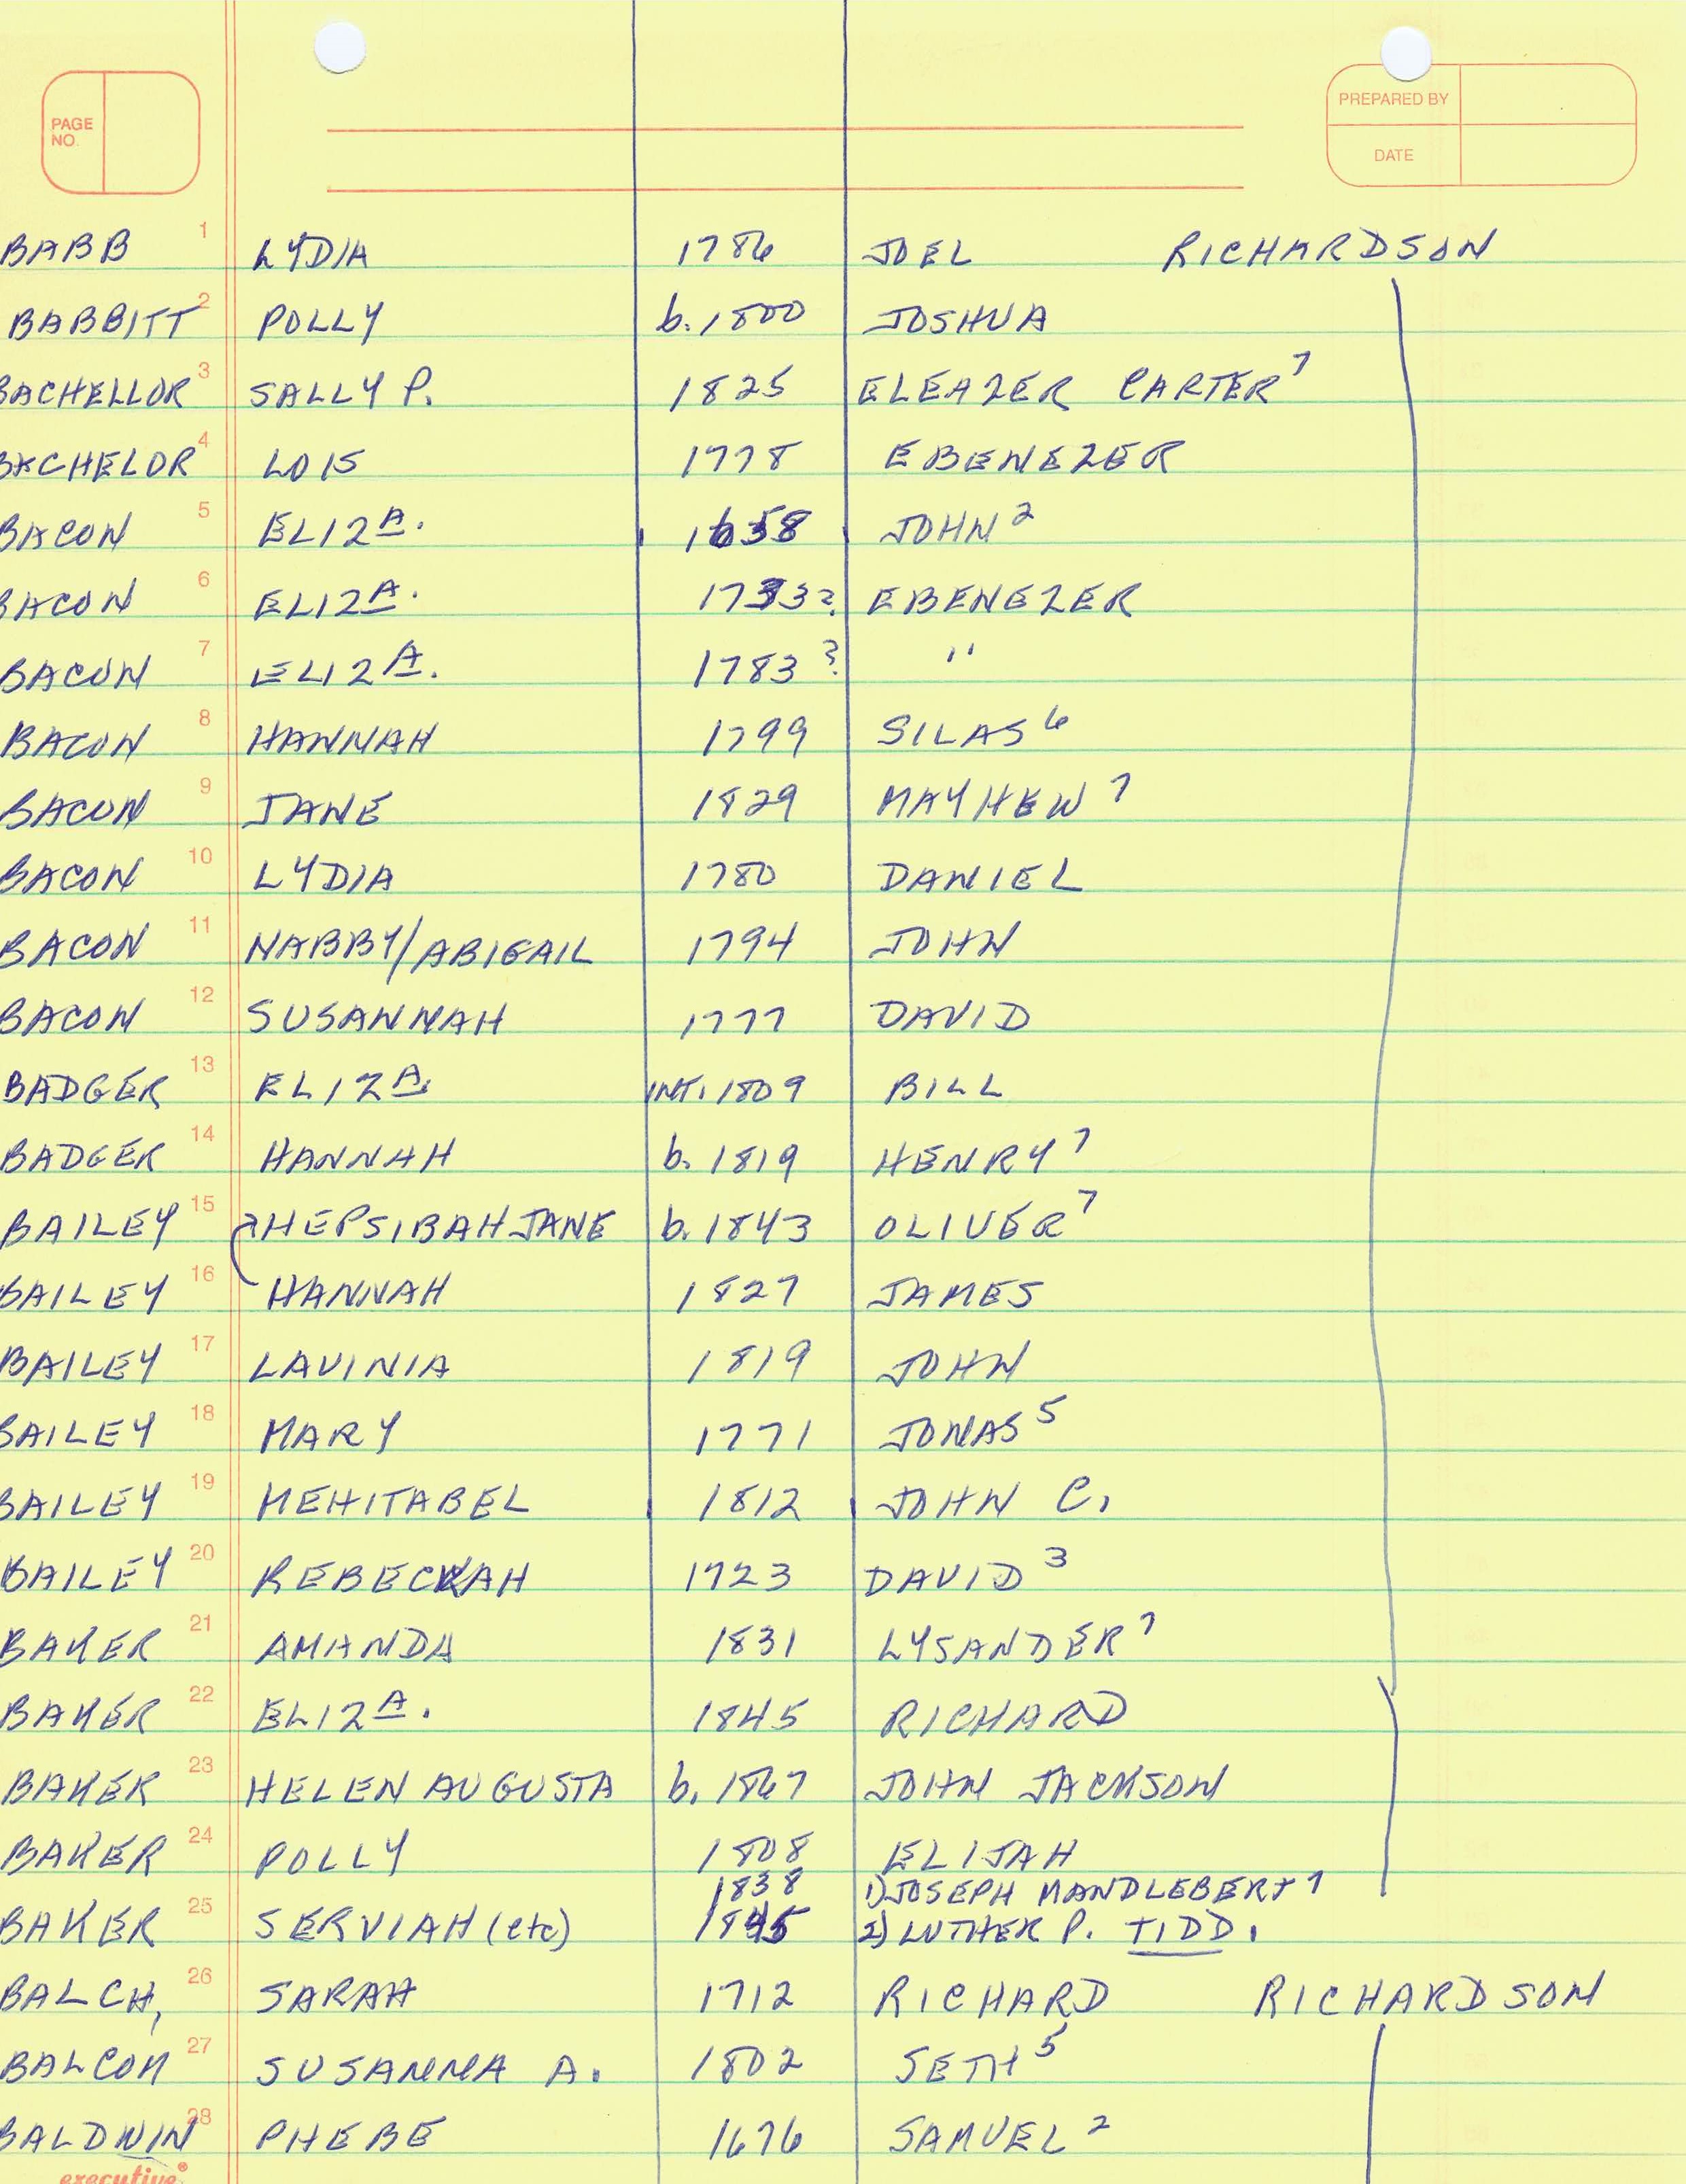 PAGE NO.
PREPARED BY
DATE
BABB 1 LYDIA 1786 JOEL RICHARDSON
BABBITT 2 POLLY b. 1800 JOSHUA
BACHELLOR 3 SALLY P. 1825 ELEAZER CARTER 7
BACHELOR 4 LOIS 1778 EBENEZER
BACON 5 ELIZA. 1658 JOHN 2
BACON 6 ELIZA. 1733? EBENEZER
BACON 7 ELIZA. 1783? "
BACON 8 HANNAH 1799 SILAS 6
BACON 9 JANE 1829 MAYHEW 7
BACON 10 LYDIA 1780 DANIEL
BACON 11 NABBY/ABIGAIL 1794 JOHN
BACON 12 SUSANNAH 1777 DAVID
BADGER 13 ELIZA. INT. 1809 BILL
BADGER 14 HANNAH b. 1819 HENRY 7
BAILEY 15 HEPSIBAH JANE b. 1843 OLIVER 7
BAILEY 16 HANNAH 1827 JAMES
BAILEY 17 LAVINIA 1819 JOHN
BAILEY 18 MARY 1771 JONAS 5
BAILEY 19 MEHITABEL 1812 JOHN C.
BAILEY 20 REBECKAH 1723 DAVID 3
BAKER 21 AMANDA 1831 LYSANDER 7
BAKER 22 ELIZA. 1845 RICHARD
BAKER 23 HELEN AUGUSTA b. 1867 JOHN JACKSON
BAKER 24 POLLY 1808 ELIJAH
1838 1) JOSEPH MANDLEBERT 7
BAKER 25 SERVIAH (etc) 1845 2) LUTHER P. TIDD.
BALCH, 26 SARAH 1712 RICHARD RICHARDSON
BALCOM 27 SUSANNA A. 1802 SETH 5
BALDWIN 28 PHEBE 1676 SAMUEL 2
executive®